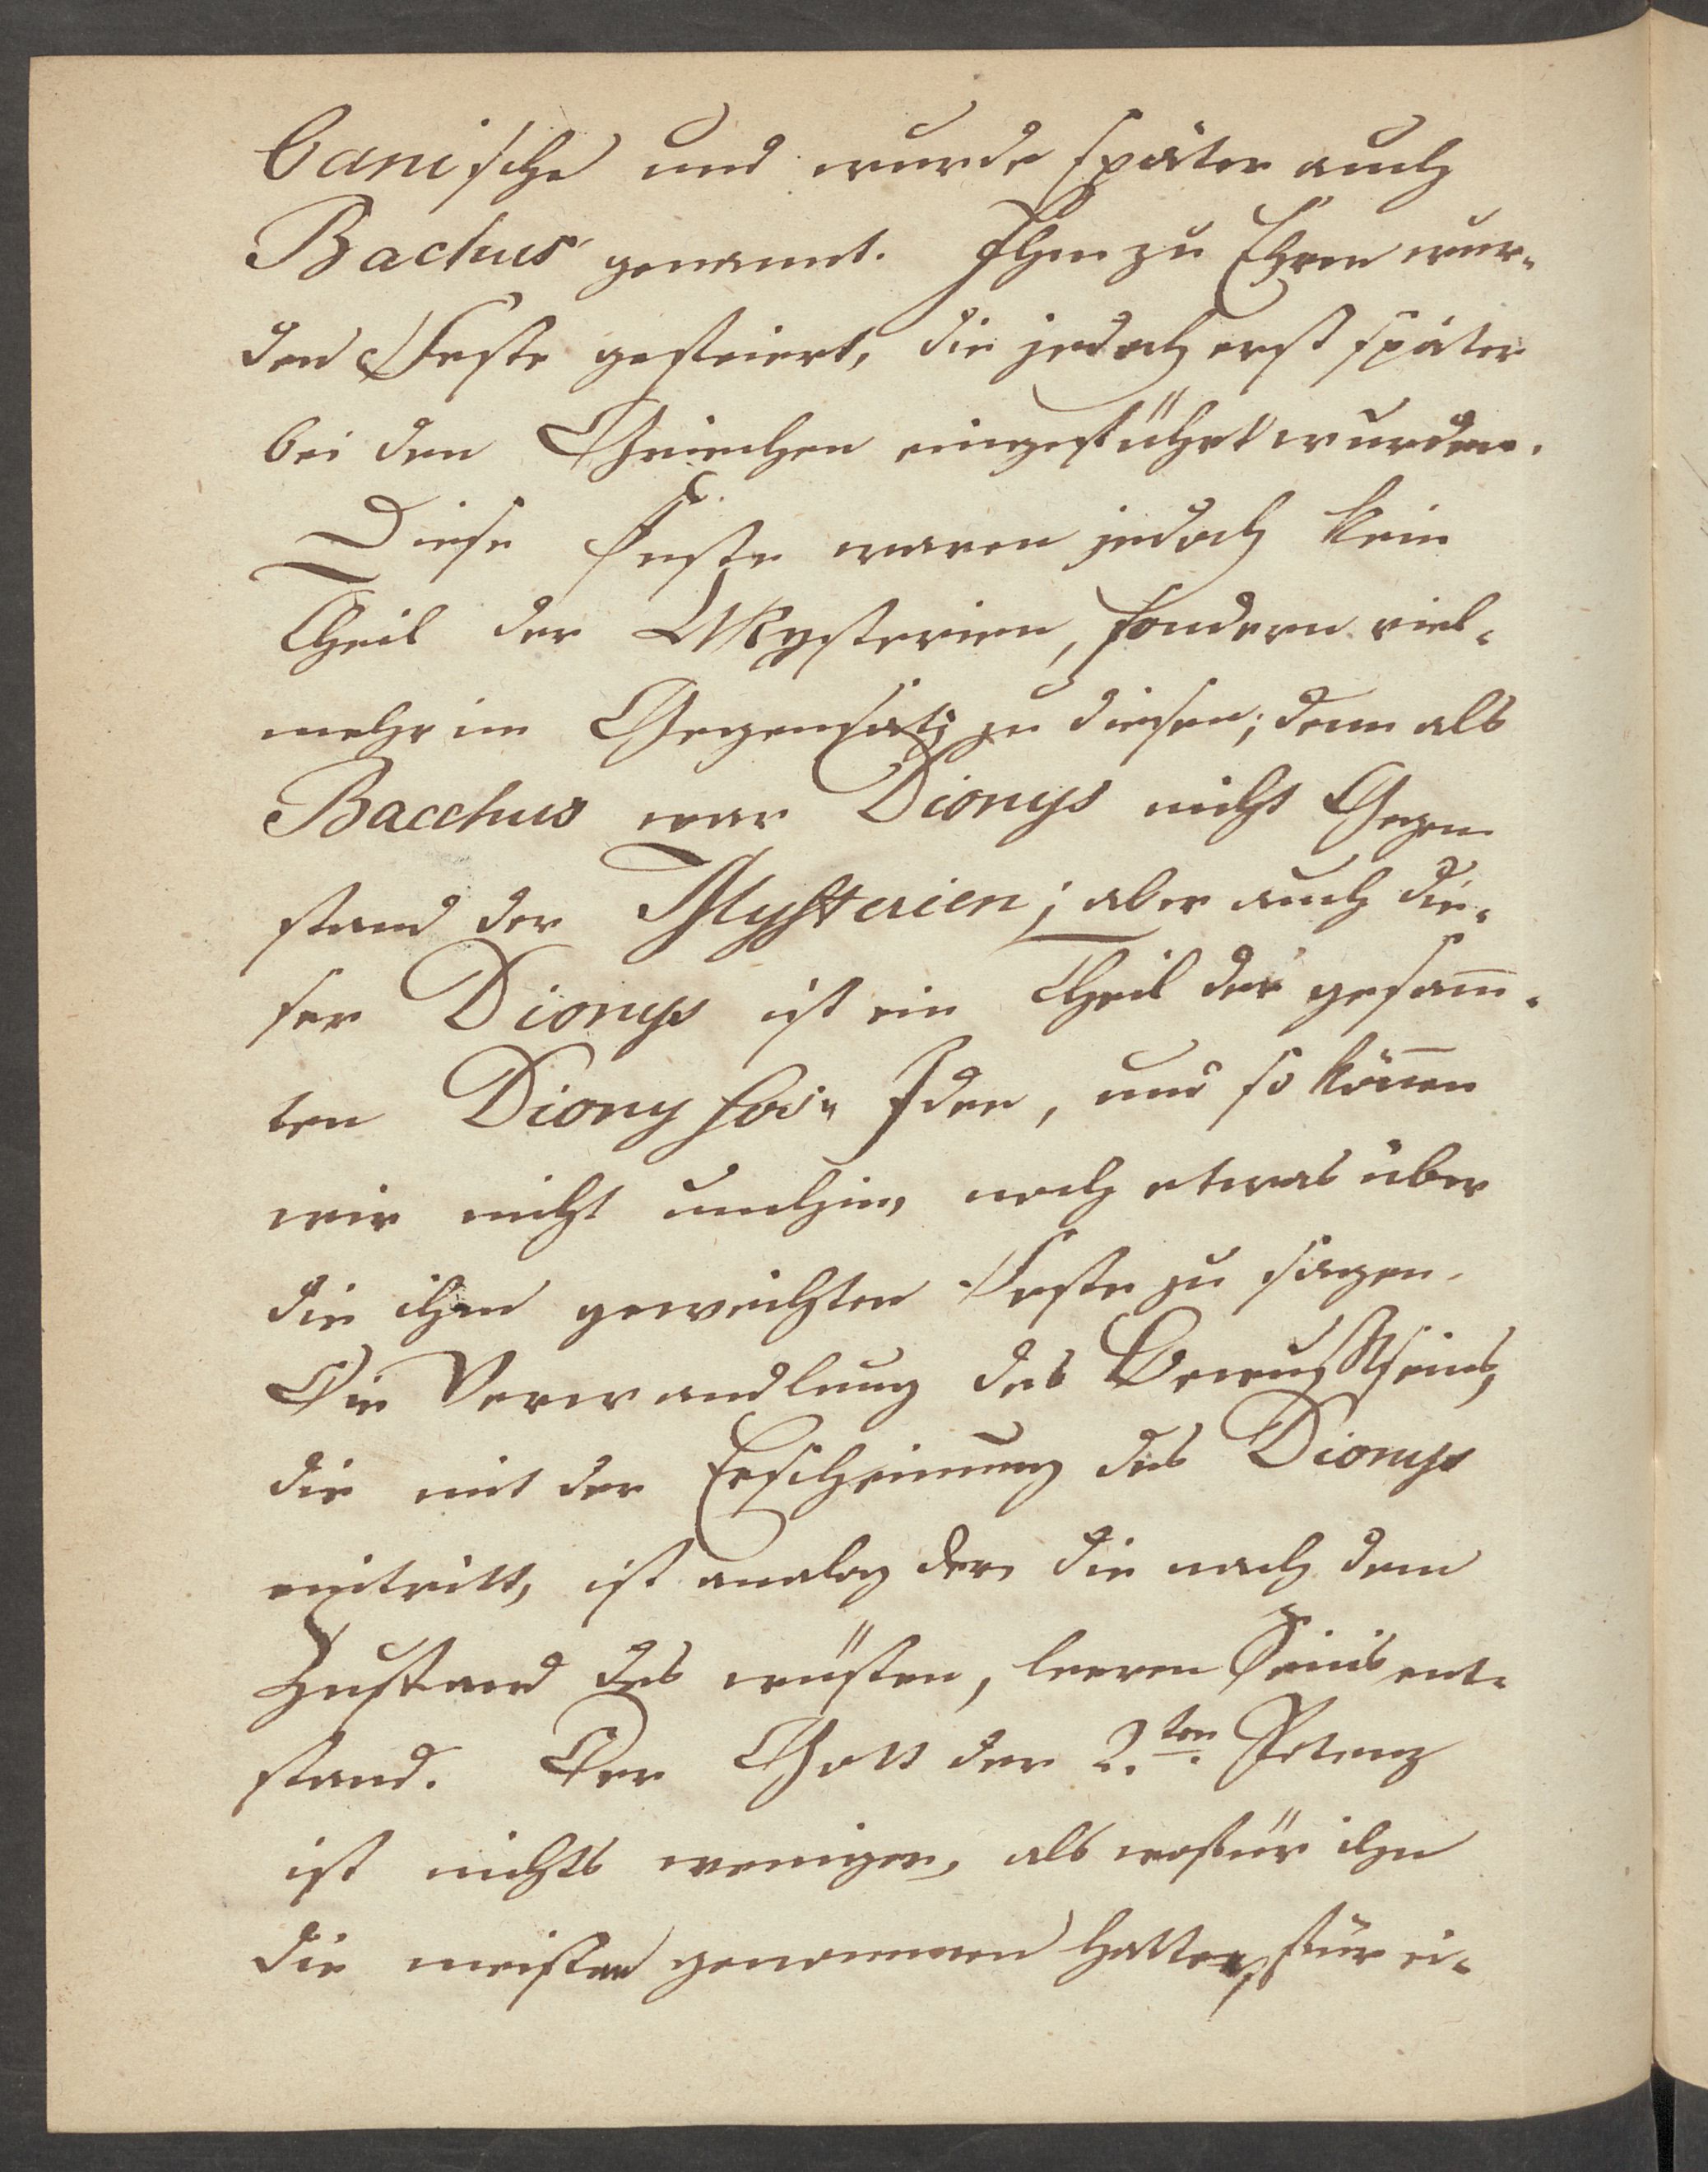 banische und wurde später auch
Bachus genannt. Ihm zu Ehren wur-
den Feste gefeiert, die jedoch erst später
bei den Griechen eingeführt wurden.
Diese Feste waren jedoch kein
Theil der Mysterien, sondern viel-
mehr im Gegensatz zu diesen; denn als
Bacchus war Dionys nicht Gegen
stand der Mysterien; aber auch die-
ser Dionys ist ein Theil der gesam̄-
ten Dionysos- Idee, und so kön̄en
wir nicht umhin, noch etwas über
die ihm geweihten Feste zu sagen.
Die Verwandlung des Bewußtseins,
die mit der Erscheinung des Dionys
eintritt, ist analog der, die nach dem
Zustand des wüsten, leeren Seins ent-
stand. Der Gott der 2.ten Potenz
ist nichts weniger, als wofür ihn
die meisten genommen hatten, für ei-